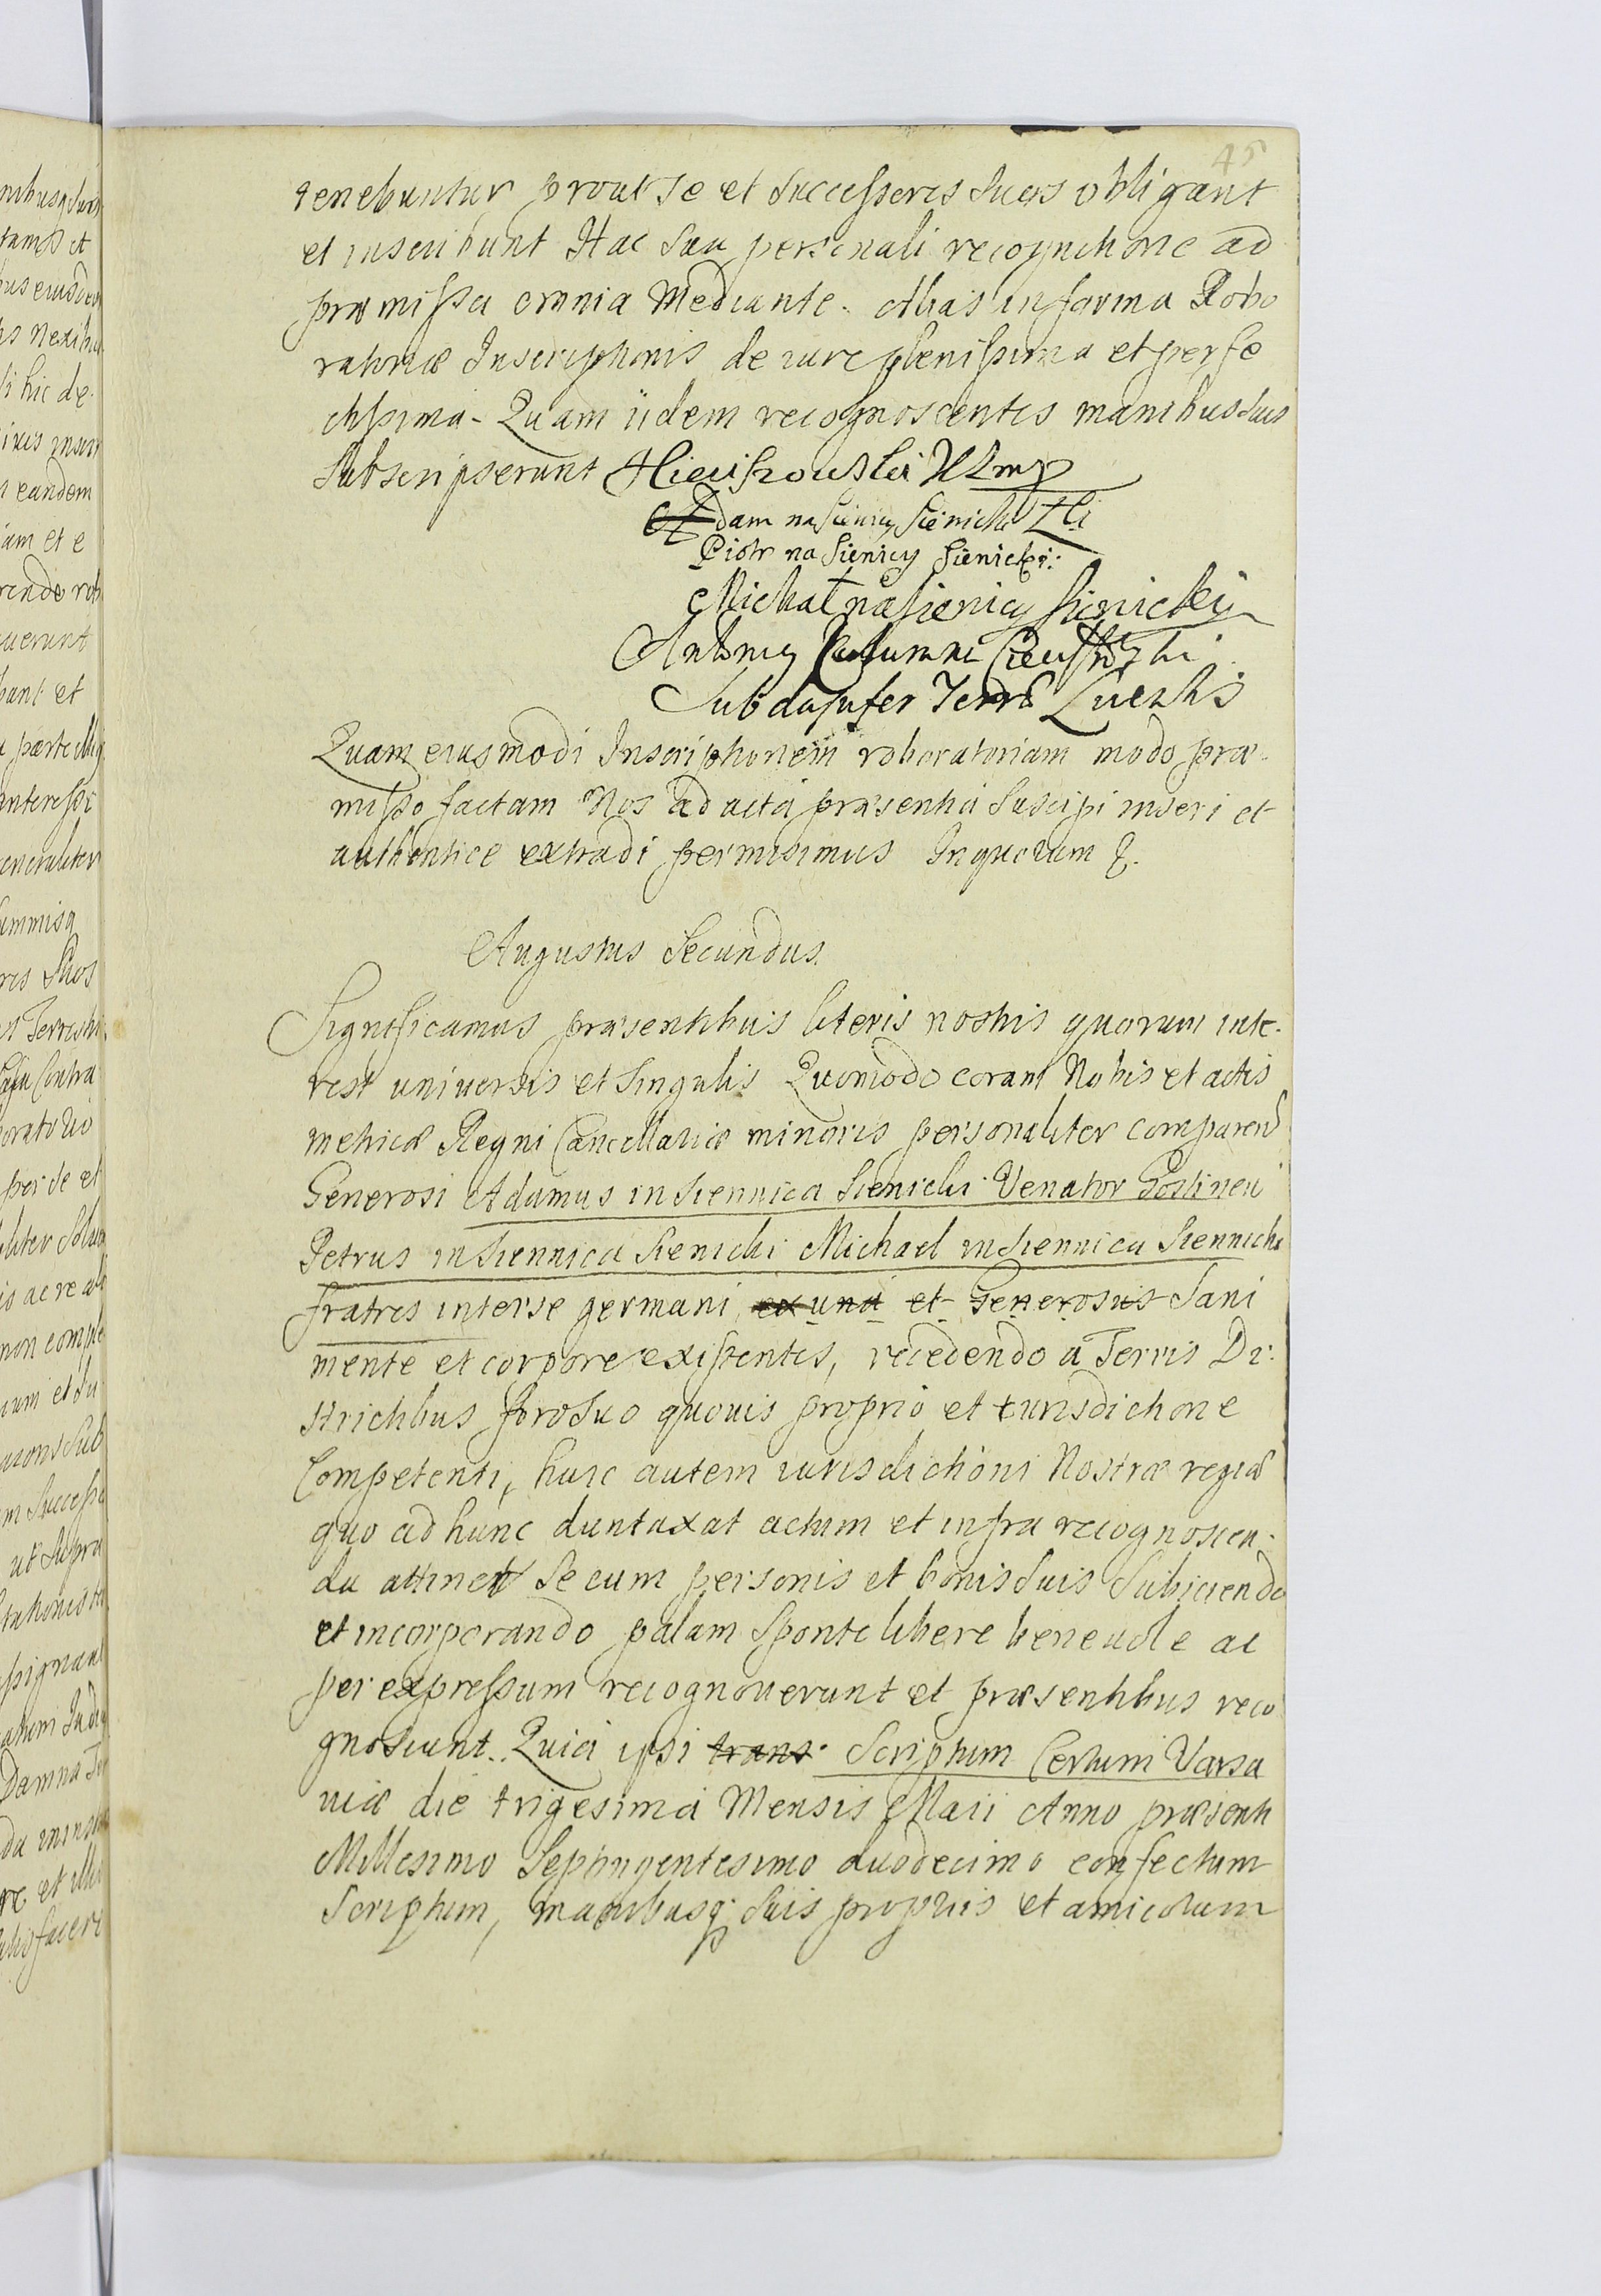 45
tenebuntur prout se et Successores Suos obligant
et inscribunt Hac Sua personali recognitione ad
præmissa omnia Mediante. Alias in forma Robo
ratoriæ Inscriptionis de iure plenissima et perfe
ctissima. Quam iidem recognoscentes manibus suis
Subscripserunt
Adam na Sienicy Sienicki
Piotr na Sienicy Sienicki:
Michał na Sienicy Sienicky
Antoni Kolumna
Subdapifer Terræ
Quam eiusmodi Inscriptionem roboratoriam modo præ-
misso factam Nos ad acta præsentia Suscipi inseri et
authentice extradi permisimus In quorum &.
Augustus Secundus.
Significamus præsentibus literis nostris quorum inte-
rest universis et Singulis Quomodo coram Nobis et actis
metricæ Regni Cancellariæ minoris personaliter comparend
Generosi Adamus in Siennica Sienicki Venator Gostinen
Petrus in Siennica Sienicki Michael in Siennica Siennicki
fratres inter se germani ex una et Generosus Sani
mente et corpore existentes, recedendo a Terris Di:
strictibus foro Suo quovis proprio et iurisdictione
Competenti, huic autem iurisdictioni Nostræ regiæ
quo ad hunc duntaxat actum et infra recognoscen-
da attinet Se cum personis et bonis Suis Subiiciendo
et incorporando palam Sponte libere benevole ac
per expressum recognoverunt et præsentibus reco
gnoscunt. Quia ipsi trans Scriptum Certum Varsa
viæ die trigesima Mensis Maii Anno præsenti
Millesimo Septingentesimo duodecimo confectum
Scriptum, manibusq; Suis propriis et amicorum